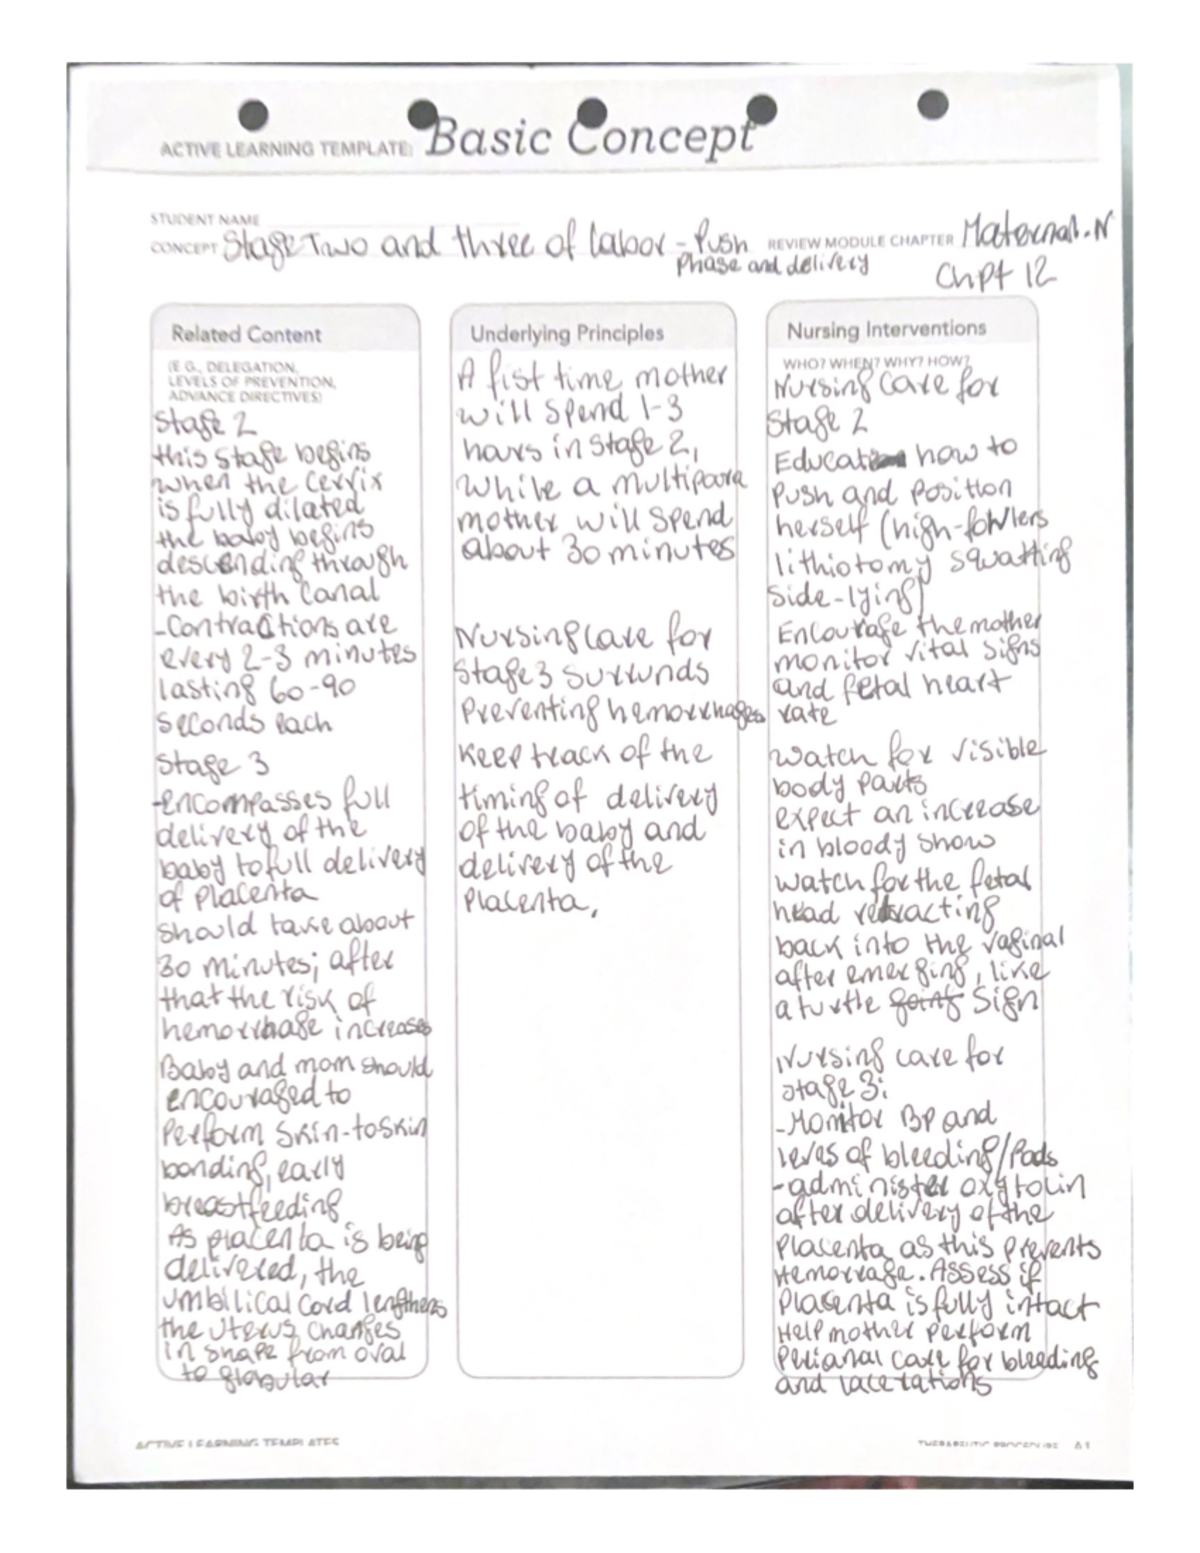 ACTIVE LEARNING TEMPLATE: Basic Concept
STUDENT NAME
CONCEPT Stage Two and three of labor - Push
Phase and delivery
REVIEW MODULE CHAPTER Maternal. N
Chpt 12
Related Content
(E.G., DELEGATION,
LEVELS OF PREVENTION,
ADVANCE DIRECTIVES)
Stage 2
this stage begins
when the cervix
is fully dilated
the baby begins
descending through
the birth canal
-Contractions are
every 2-3 minutes
lasting 60-90
seconds each
Stage 3
-encompasses full
delivery of the
baby to full delivery
of placenta
should take about
30 minutes; after
that the risk of
hemorrhage increases
Baby and mom should
encouraged to
Perform skin-toskin
bonding, early
breastfeeding
As placenta is being
delivered, the
umbilical cord lengthens
the uterus changes
in shape from oval
to globular
Underlying Principles
A fist time mother
will spend 1-3
hours in stage 2,
while a multipara
mother will spend
about 30 minutes
Nursing care for
Stage 3 surrunds
Preventing hemorrhages
Keep track of the
timing of delivery
of the baby and
delivery of the
Placenta,
Nursing Interventions
WHO? WHEN? WHY? HOW?
Nursing Care for
Stage 2
Education how to
Push and position
herself (high-fowlers
lithiotomy squatting
side-lying)
Encourage the mother
monitor vital signs
and fetal heart
rate
Watch for visible
body parts
expect an increase
in bloody show
watch for the fetal
head retracting
back into the vaginal
after emerging, like
a turtle going sign
Nursing care for
stage 3:
-Monitor BP and
leves of bleeding/Pads
-administer oxytocin
after delivery of the
Placenta as this prevents
Hemorrage. Assess if
Placenta is fully intact
Help mother perform
Perianal care for bleeding
and lacerations
ACTIVE LEARNING TEMPLATES
THERAPEUTIC PROCEDURE A1